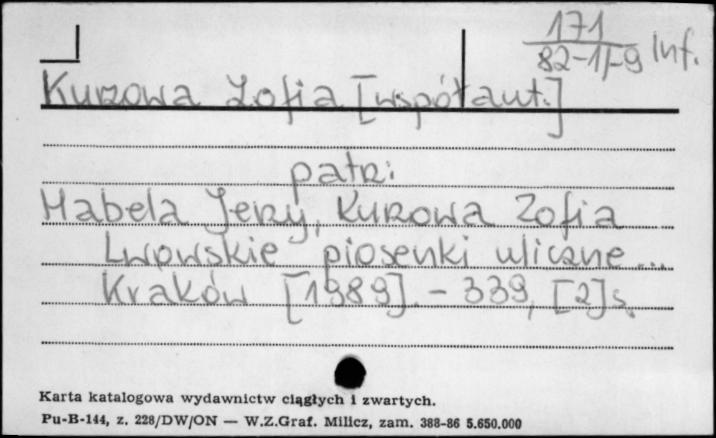 171
82-1/-9 Inf.
Kurowa Zofia [współaut.]
patrz:
Habela Jerzy, Kurowa Zofia
Lwowskie piosenki uliczne...
Kraków [1989]. - 339, [2]s.
Karta katalogowa wydawnictw ciągłych i zwartych.
Pu-B-144, z. 228/DW/ON — W.Z.Graf. Milicz, zam. 388-86 5.650.000